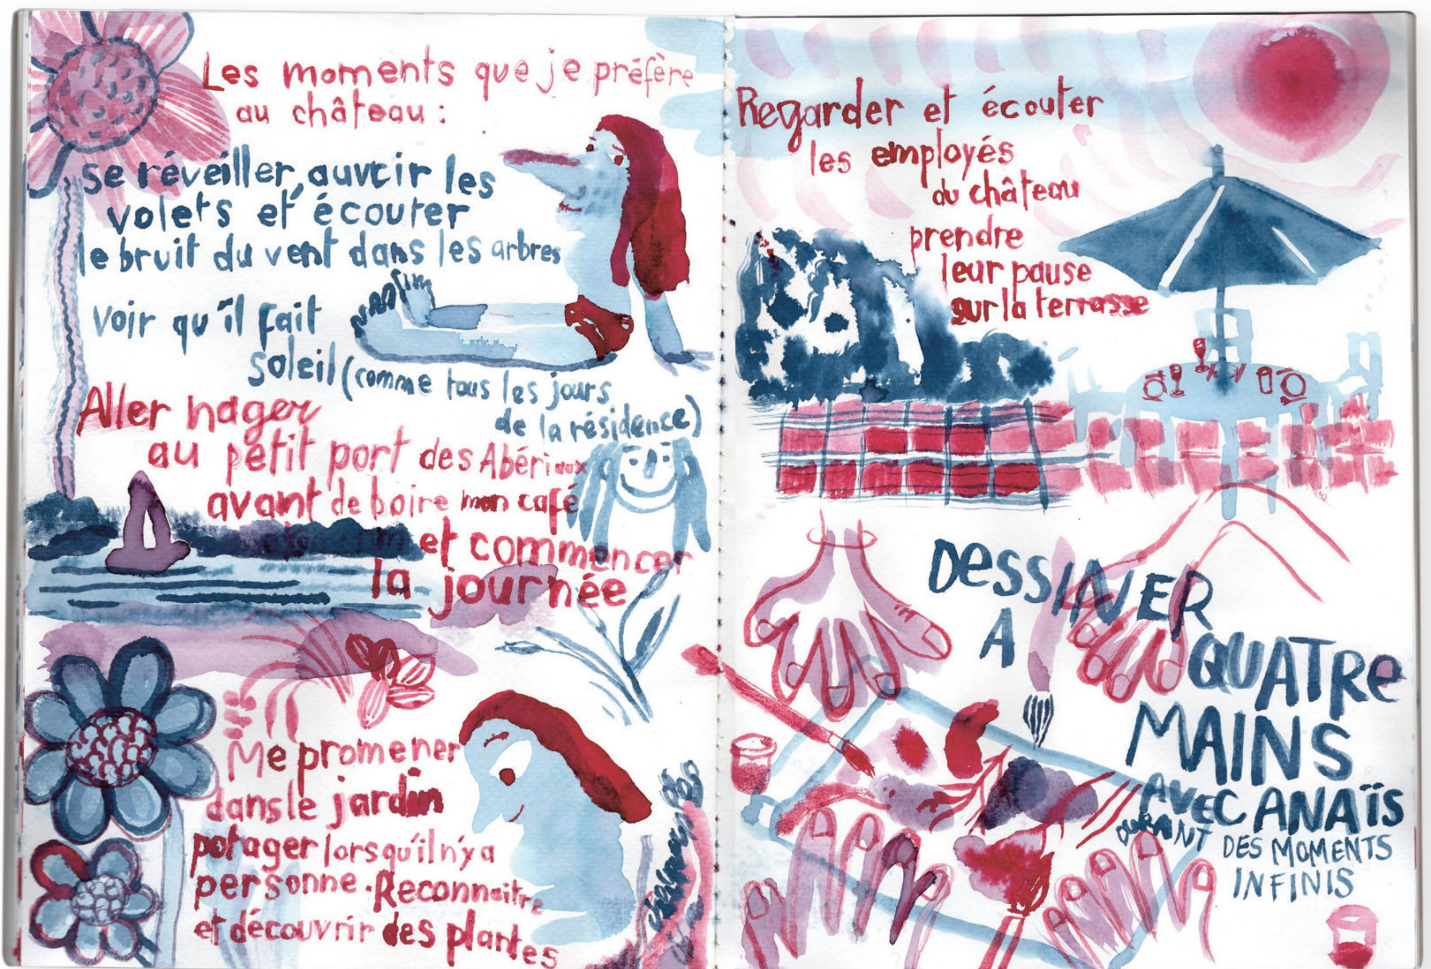 Les moments que je préfère
au château :
se réveiller, ouvrir les
volets et écouter
le bruit du vent dans les arbres
voir qu'il fait
soleil (comme tous les jours
de la résidence)
Aller nager
au petit port des
avant de boire mon café
et commencer
la journée
Me promener
dans le jardin
potager lorsqu'il n'y a
personne. Reconnaitre
et découvrir des plantes
Regarder et écouter
les employés
du château
prendre
leur pause
sur la terrasse
DESSINER
A
QUATRE
MAINS
AVEC ANAÏS
DURANT DES MOMENTS
INFINIS